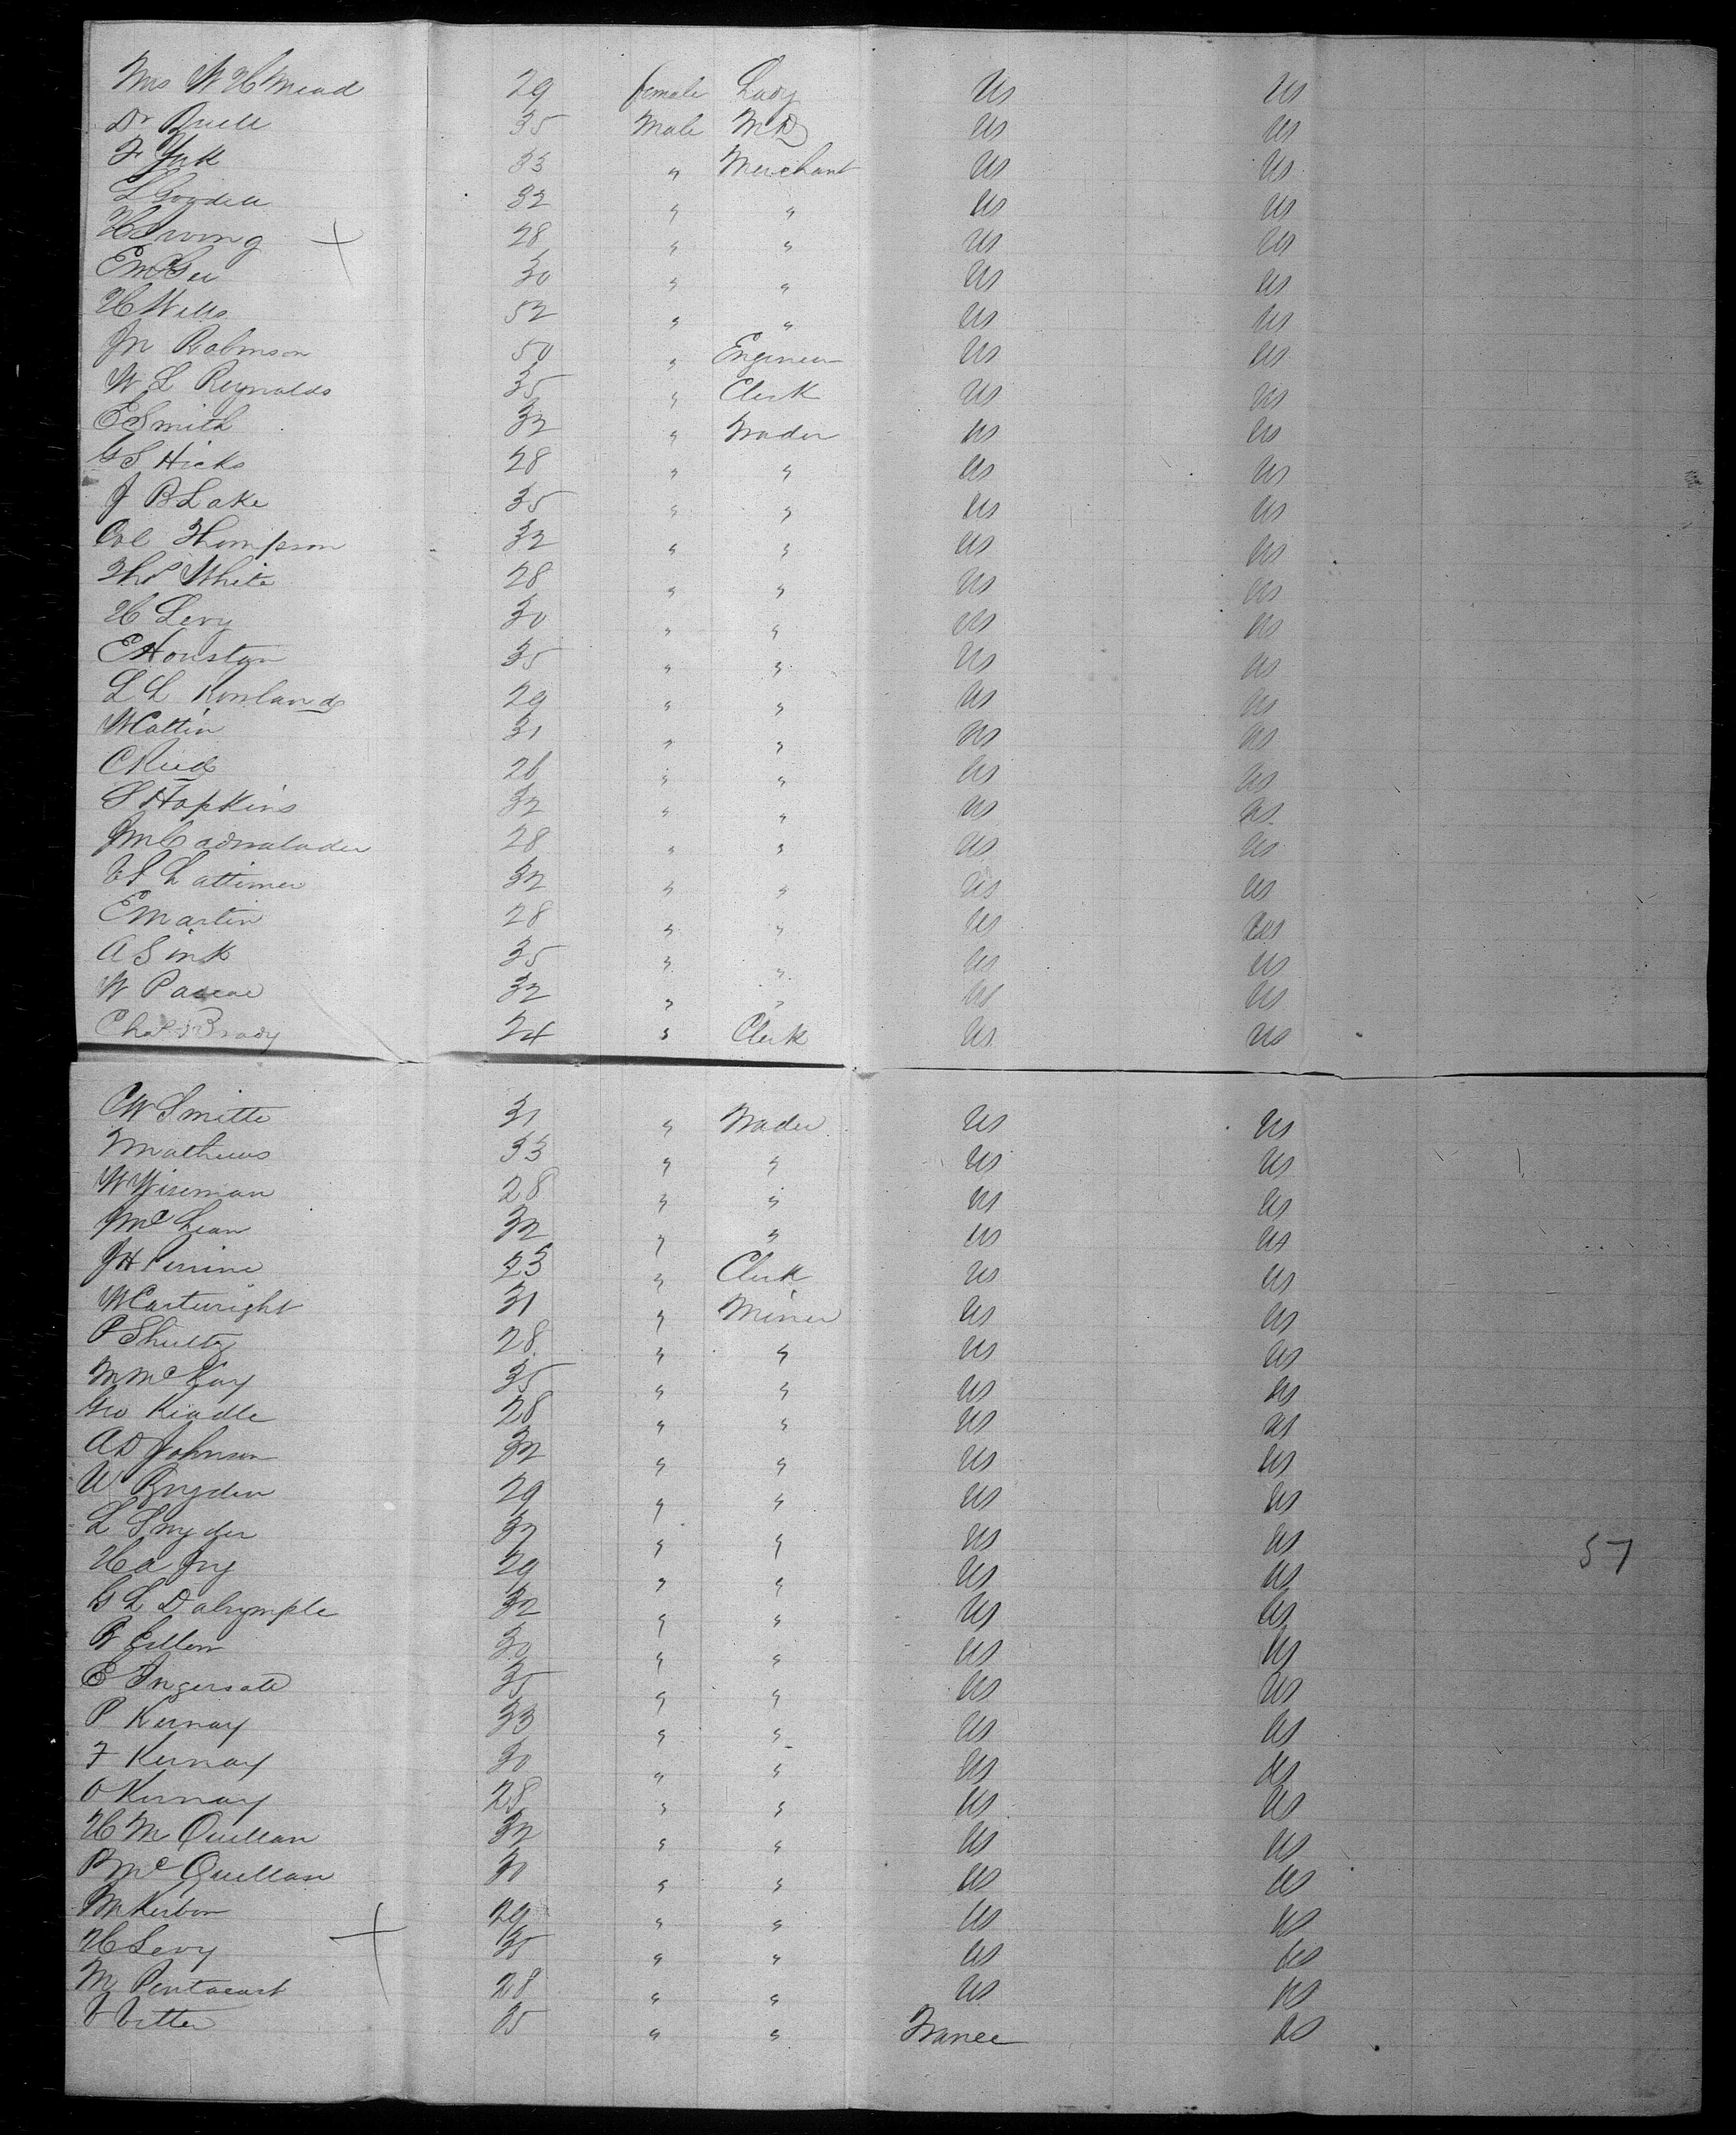 Mrs W H Mead 29 female Lady US US
Dr Buell 35 Male MD US US
F York 33 " Merchant US US
L Goodell 32 " " US US
H Irving + 28 " " US US
E McGee 30 " " US US
H Wells 52 " " US US
Jn Robinson 50 " Engineer US US
W L Reynolds 35 " Clerk US US
E Smith 32 " Trader US US
G S Hicks 28 " " US US
J B Lake 35 " " US US
Col Thompson 32 " " US US
Thos White 28 " " US US
H Levy 30 " " US US
E Houston 35 " " US US
L L Rowland 29 " " US US
W Cattin 31 " " US US
C Reed 26 " " US US
S Hopkins 32 " " US US
Jn Cadwalader 28 " " US US
Lattimer 32 " " US US
E Martin 28 " " US US
A Sink 35 " " US US
W Pascoe 32 " " US US
Chas Brady 24 " Clerk US US
C W Smith 31 " Trader US US
Mathews 33 " " US US
W Wiseman 28 " " US US
J McLean 32 " " US US
J H Perrine 23 " Clerk US US
W Cartwright 31 " Miner US US
P Shultz 28 " " US US
M McKay 35 " " US US
Geo Keadle 28 " " US US
A D Johnson 32 " " US US
W Bryden 29 " " US US
L Snyder 32 " " US US
H A Joy 29 " " US US 57
G L Dalrymple 32 " " US US
R Gillem 30 " " US US
E Ingersole 35 " " US US
P Kernay 33 " " US US
F Kernay 30 " " US US
O Kernay 28 " " US US
H Mc Quillan 32 " " US US
P Mc Quillan 30 " " US US
M Kerbon 29 " " US US
H Levy + 35 " " US US
M Pentacart 28 " " US US
V Vitter 35 " " France US